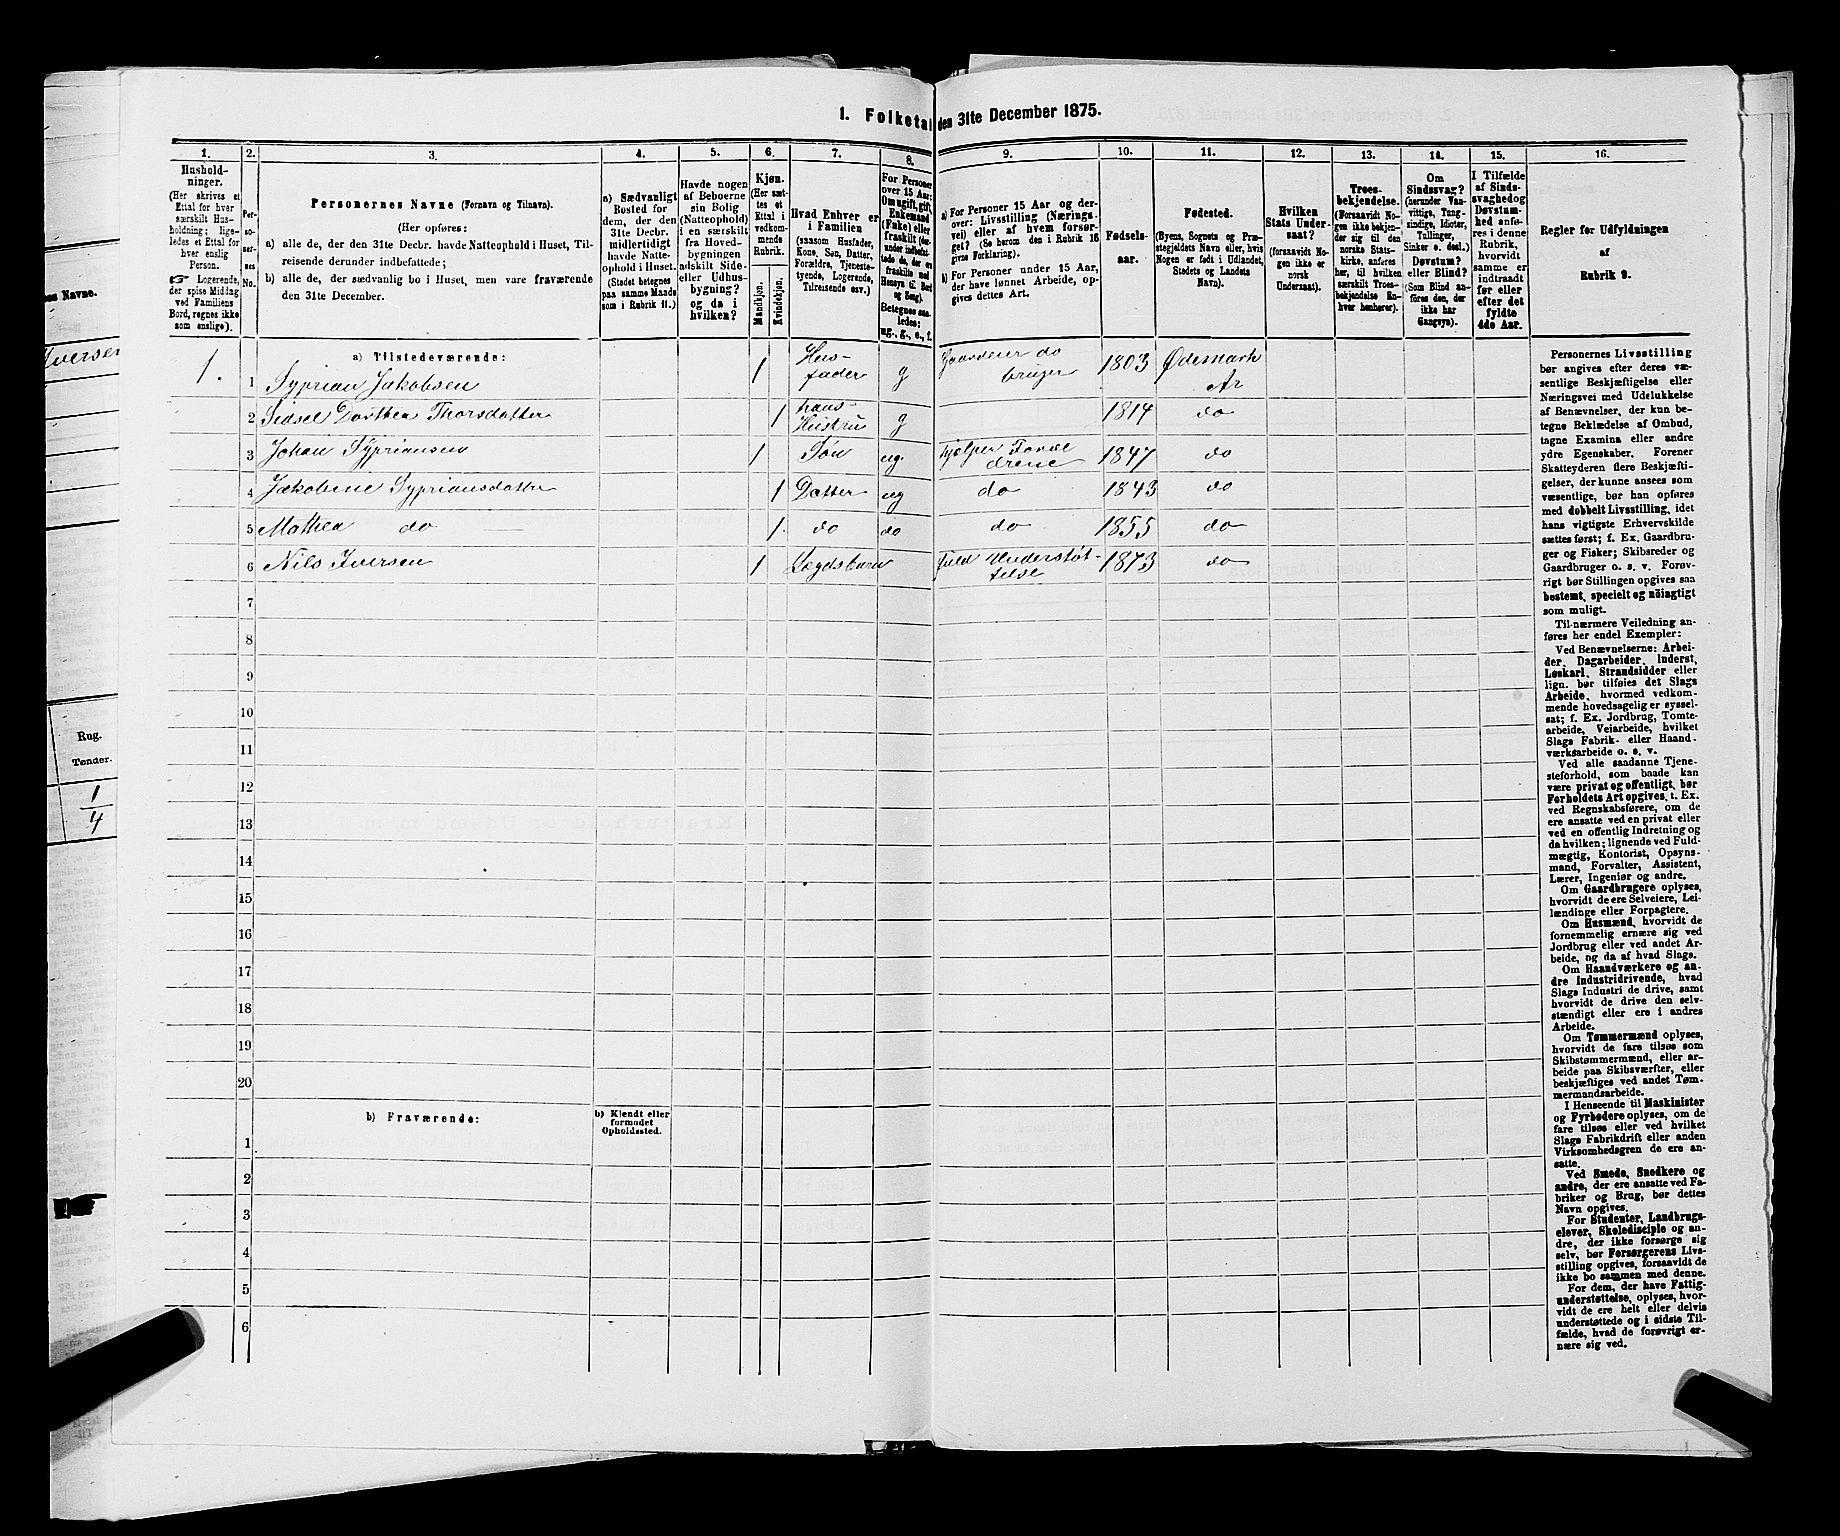 1. Folketal den 31te December 1875.
es Navne.
Iversen
Rug.
Tønder.
1/4
1.
Hushold-
ninger.
(Her skrives et
Ettal for hver
særskilt Hus-
holdning; lige-
ledes et Ettal for
hver enslig
Person.
☞ Logerende,
der spise Middag
ved Familiens
Bord, regnes ikke
som enslige).
2.
Per-
so-
ner-
nes
No.
3.
Personernes Navne (Fornavn og Tilnavn).
(Her opføres:
a) alle de, der den 31te Decbr. havde Natteophold i Huset, Til-
reisende derunder indbefattede;
b) alle de, der sædvanlig bo i Huset, men vare fraværende
den 31te December.
4.
a) Sædvanligt
Bosted for
dem, der den
31te Decbr.
midlertidigt
havde Natte-
ophold i Huset.
(Stedet betegnes
paa samme Maade
som i Rubrik 11.)
5.
Havde nogen
af Beboerne
sin Bolig
(Natteophold)
i en særskilt
fra Hoved-
bygningen
adskilt Side-
eller Udhus-
bygning?
og da i
hvilken?
6.
Kjøn.
(Her sæt-
tes et
Ettal i
vedkom-
mende
Rubrik.
Mandkjøn.
Kvindekjøn.
7.
Hvad Enhver er
i Familien
(saasom Husfader,
Kone, Søn, Datter,
Forældre, Tjeneste-
tyende, Logerende,
Tilreisende osv.)
8.
For Personer
over 15 Aar:
Om ugift, gift,
Enkemand
(Enke) eller
fraskilt (der-
under indbefat-
tede de, der ere
fraskilte med
Hensyn til Bord
og Seng).
Betegnes saa-
ledes:
ug., g., e., f.
9.
a) For Personer 15 Aar og der-
over: Livsstilling (Nærings-
vei) eller af hvem forsør-
get? (Se herom den i Rubrik 16
givne Forklaring).
b) For Personer under 15 Aar,
der have lønnet Arbeide, op-
gives dettes Art.
10.
Fødsels-
aar.
11.
Fødested.
(Byens, Sognets og Præ-
stegjeldets Navn eller, hvis
Nogen er født i Udlandet,
Stedets og Landets
Navn).
12.
Hvilken
Stats Under-
saat?
(forsaavidt No-
gen ikke er
norsk
Undersaat).
13.
Troes-
bekjendelse.
(Forsaavidt No-
gen ikke bekjen-
der sig til den
norske Stats-
kirke, anføres
her, til hvilken
særskilt Troes-
bekjendelse En-
hver henhører).
14.
Om
Sindssvag?
(herunder Van-
vittige, Tung-
sindige, Idioter,
Tullinger,
Sinker o. desl.)
Døvstum?
eller Blind?
(Som Blind an-
føres den, der
ikke har
Gangsyn).
15.
I Tilfælde
af Sinds-
svaghed og
Døvstum-
hed anfø-
res i denne
Rubrik,
hvorvidt
samme er
indtraadt
før eller
efter det
fyldte
4de Aar.
16.
Regler for Udfyldningen
af
Rubrik 9.
a) Tilstedeværende:
1. 1 Syprian Jakobsen 1 Hus-
fader g Gaardeier do
bruger 1803 Ødemark
Ar
2 Sidsel Dorthea Thorsdatter 1 hans
Hustru g 1814 do
3 Johan Sypriansen 1 Søn ug. hjelper Foræl
drene 1847 do
4 Jakobine Sypriansdatter 1 Datter ug do 1843 do
5 Mathea do 1. do do do 1855 do
6 Nils Iversen 1 Lægdsbarn fuld Understøt-
telse 1873 do
7
8
9
10
11
12
13
14
15
16
17
18
19
20
b) Fraværende:
b) Kjendt eller
formodet
Opholdssted.
1
2
3
4
5
6
Personernes Livsstilling
bør angives efter deres væ-
sentlige Beskjæftigelse eller
Næringsvei med Udelukkelse
af Benævnelser, der kun be-
tegne Beklædelse af Ombud,
tagne Examina eller andre
ydre Egenskaber. Forener
Skatteyderen flere Beskjæfti-
gelser, der kunne ansees som
væsentlige, bør han opføres
med dobbelt Livsstilling, idet
hans vigtigste Erhvervskilde
sættes først; f. Ex. Gaardbru-
ger og Fisker; Skibsreder og
Gaardbruger o. s. v. Forøv-
rigt bør Stillingen opgives saa
bestemt, specielt og nöiagtigt
som muligt.
Til nærmere Veiledning an-
føres her endel Exempler:
Ved Benævnelserne: Arbei-
der, Dagarbeider, Inderst,
Løskarl, Strandsidder eller
lign. bør tilføies det Slags
Arbeide, hvormed vedkom-
mende hovedsagelig er syssel-
sat; f. Ex. Jordbrug, Tomte-
arbeide, Veiarbeide, hvilket
Slags Fabrik- eller Haand-
værksarbeide o. s. v.
Ved alle saadanne Tjene-
steforhold, som baade kan
være privat og offentligt, bør
Forholdets Art opgives, t. Ex.
ved Regnskabsførere, om de
ere ansatte ved en privat eller
ved en offentlig Indretning og
da hvilken; lignende ved Fuld-
mægtig, Kontorist, Opsyns-
mand, Forvalter, Assistent,
Lærer, Ingeniør og andre.
Om Gaardbrugere oplyses,
hvorvidt de ere Selveiere, Lei-
lændinge eller Forpagtere.
Om Husmænd, hvorvidt de
fornemmelig ernære sig ved
Jordbrug eller ved andet Ar-
beide, og da af hvad Slags.
Om Haandværkere og an-
dre Industridrivende, hvad
Slags Industri de drive, samt
hvorvidt de drive den selv-
stændigt eller ere i andres
Arbeide.
Om Tømmermænd oplyses,
hvorvidt de fare tilsøs som
Skibstømmermænd, eller ar-
beide paa Skibsværfter, eller
beskjæftiges ved andet Tøm-
mermandsarbeide.
I Henseende til Maskinister
og Fyrbødere oplyses, om de
fare tilsøs eller ved hvilket
Slags Fabrikdrift eller anden
Virksomhedsgren de ere an-
satte.
Ved Smede, Snedkere og
andre, der ere ansatte ved Fa-
briker og Brug, bør dettes
Navn opgives.
For Studenter, Landbrugs-
elever, Skoledisciple og an-
dre, der ikke forsørge sig
selv, bør Forsørgerens Livs-
stilling opgives, forsaavidt de
ikke bo sammen med denne.
For dem, der have Fattig-
understøttelse, oplyses, hvor-
vidt de ere helt eller delvis
understøttede og i sidste Til-
fælde, hvad de forøvrigt er-
nære sig ved.